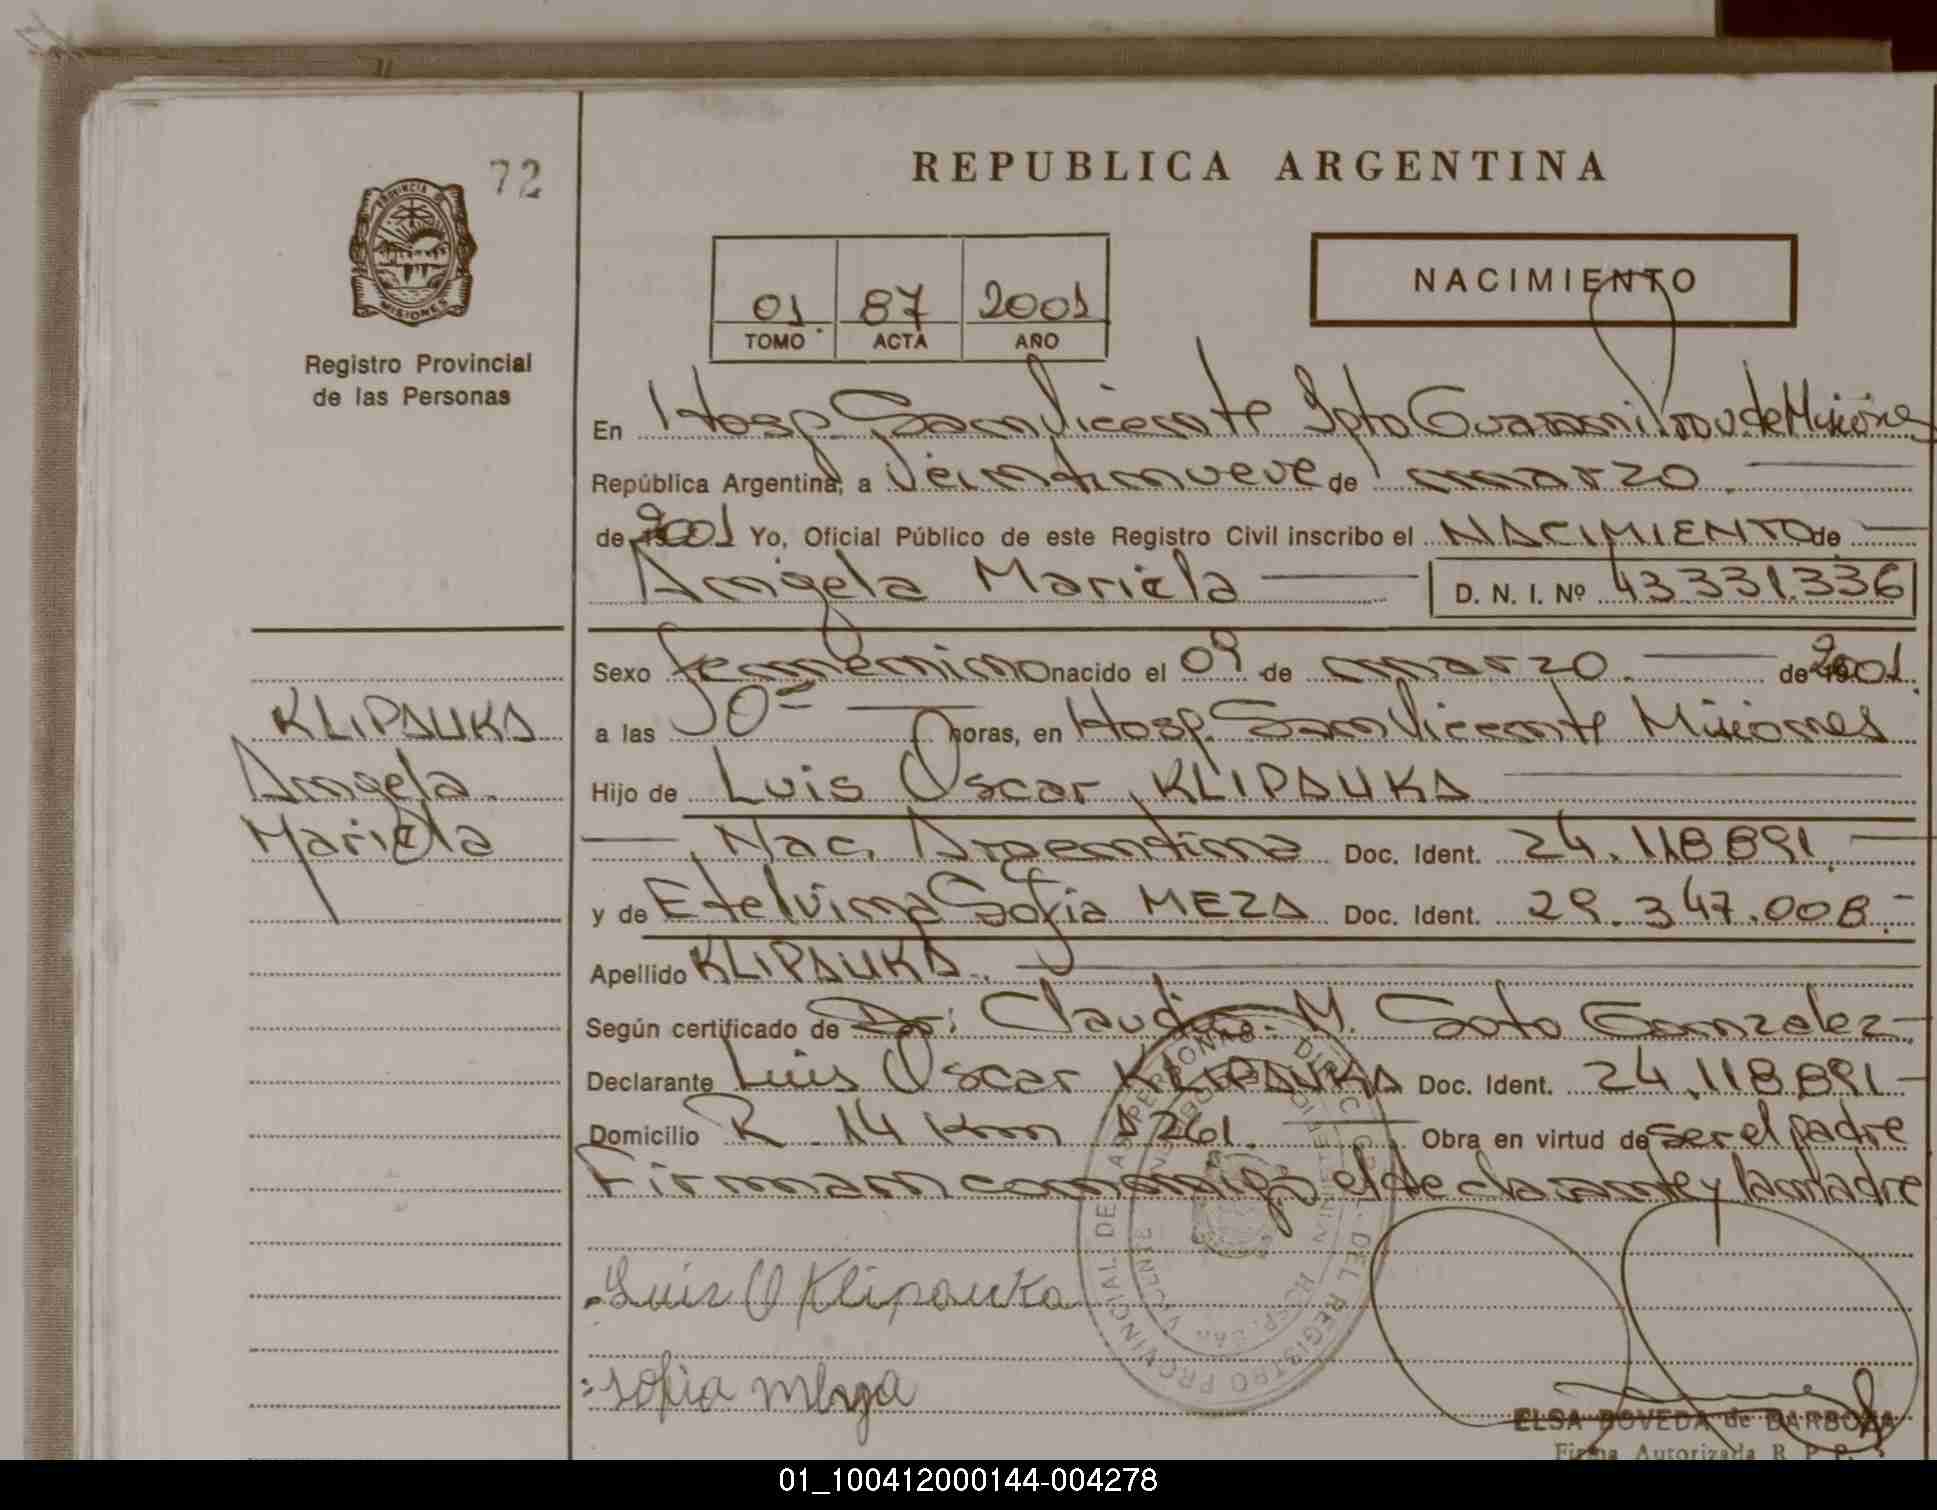 72
REPUBLICA ARGENTINA
PROVINCIA DE
MISIONES
Registro Provincial
de las Personas
01 87 2001
TOMO ACTA AÑO
NACIMIENTO
En Hosp. San Vicente Dpto Guarani Prov. de Misiones
República Argentina, a veintinueve de marzo
de 2001 Yo, Oficial Público de este Registro Civil inscribo el NACIMIENTO de
Angela Mariela D. N. I. Nº 43.331.336
Sexo femenino nacido el 09 de marzo de 2001
a las horas, en Hosp. San Vicente Misiones
KLIPAUKA
Angela
Mariela
Hijo de Luis Oscar KLIPAUKA
Nac. Argentina Doc. Ident. 24.118.891
y de Etelvina Sofia MEZA Doc. Ident. 29.347.008
Apellido KLIPAUKA
Según certificado de Dr: Claudio M. Soto Gonzalez
Declarante Luis Oscar KLIPAUKA Doc. Ident. 24.118.891
Domicilio R 14 Km 1261 Obra en virtud de ser el padre
Firman conmigo el declarante y la madre
Luis O Klipauka
Sofia
DIREC. GRAL. DEL REGISTRO PROVINCIAL DE LAS PERSONAS
HOSP. SAN VICENTE
ELSA BOVEDA de BARBOZA
Firma Autorizada R. P. P.
01_100412000144-004278